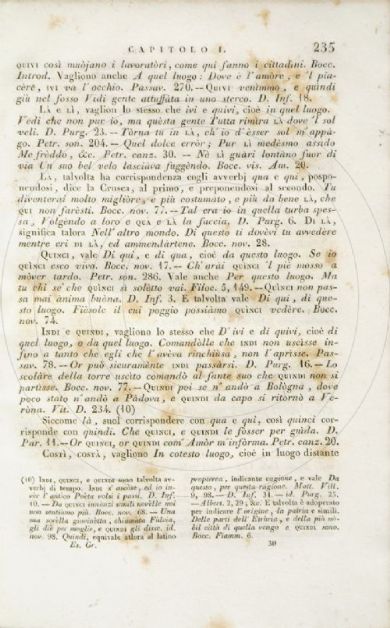 CAPITOLO I. 235
QUIVI così muòjano i lavoratòri, come qui fanno i cittadini. Bocc.
Introd. Vagliono anche A quel luogo: Dove è l'amòre, e 'l pia-
cère, IVI va l'occhio. Passav. 270. — QUIVI venimmo, e quindi
giù nel fosso Vidi gente attuffàta in uno sterco. D. Inf. 18.
LÀ e LÌ, vaglion lo stesso che ivi e quivi, cioè in quel luogo.
Vedi che non pur io, ma quèsta gente Tutta rimira LÀ dove 'l sol
veli. D. Purg. 23. — Tòrna tu in LÀ, ch'io d'èsser sol m'appà-
go. Petr. son. 204. — Quel dolce error; Pur LÌ medèsmo assido
Me fréddo, &c. Petr. canz. 30. — Nè LÌ guari lontàno fuor di
via Un suo bel velo lasciàva fuggèndo. Bocc. vis. Am. 20.
LÀ, talvolta ha corrispondenza cogli avverbj qua e qui, pospo-
nendosi, dice la Crusca, al primo, e preponendosi al secondo. Tu
diventerai molto miglióre, e più costumàto, e più da bene LÀ, che
QUI non farèsti. Bocc. nov. 77. — Tal era io in quella turba spes-
sa, Volgendo a loro e QUA e LÀ la faccia, D. Purg. 6. DI LÀ,
significa talora Nell' altro mondo. Di questo ti dovévi tu avvedere
mentre eri DI LÀ, ed ammendàrtene. Bocc. nov. 28.
QUINCI, vale Di qui, e di qua, cioè da questo luogo. Se io
QUINCI esco vivo. Bocc. nov. 17. — Ch' orài QUINCI 'l piè mosso a
mòver tardo. Petr. son. 286. Vale anche Per questo luogo. Ma
tu chi se' che QUINCI sì solètto vai. Filoc. 5, 149. — QUINCI non pas-
sa mai ànima buòna. D. Inf. 3. E talvolta vale Di qui, di que-
sto luogo. Fièsole il cui poggio possiàmo QUINCI vedère. Bocc.
nov. 74.
INDI e QUINDI, vagliono lo stesso che D' ivi e di quivi, cioè di
quel luogo, o da quel luogo. Comandòlle che INDI non uscìsse in-
fino a tanto che egli che l'avèva rinchiùsa, non l'aprìsse. Pas-
sav. 78. — Or può sicuramènte INDI passàrsi. D. Purg. 16. — Lo
scolàre della torre uscìto comandò al fante suo che QUINDI non si
partìsse. Bocc. nov. 77. — QUINDI poi se n' andò a Bològna, dove
poco stato n'andò a Pàdova, e QUINDI da capo si ritornò a Ve-
ròna. Vit. D. 234. (10)
Siccome là, suol corrispondere con qua e qui, così quinci cor-
risponde con quindi. Che QUINCI, e QUINDI le fosser per guida. D.
Par. 11. — Or QUINCI, or QUINDI com' Amòr m' infòrma. Petr. canz. 20.
COSTÌ, COSTÀ, vagliono In cotesto luogo, cioè in luogo distante
(10) INDI, QUINCI, e QUINDI sono talvolta av-
verbj di tempo. INDI s'ancise, ed io in-
ver l'antico Poèta volsi i passi. D. Inf.
10. — Da QUINCI innanzi simili novèlle noi
non sentiamo più. Bocc. nov. 68. — Una
sua sorella giovinètta, chiamata Fulvia,
gli diè per moglie, e QUINDI gli disse. id.
nov. 98. Quindi, equivale allora al latino
proprea, indicante cagione, e vale Da
questo, per questa ragione. Matt. Vill.
9, 98. — D. Inf. 31. — id. Purg. 25.
— Albert. 2, 29, &c. E talvolta è adoperato
per indicare l'origine, la patria e simili.
Delle parti dell' Etrùria, e della più nò-
bil città di quella vengo e QUINDI sono.
Bocc. Fiamm. 6.
Es. Gr.
30